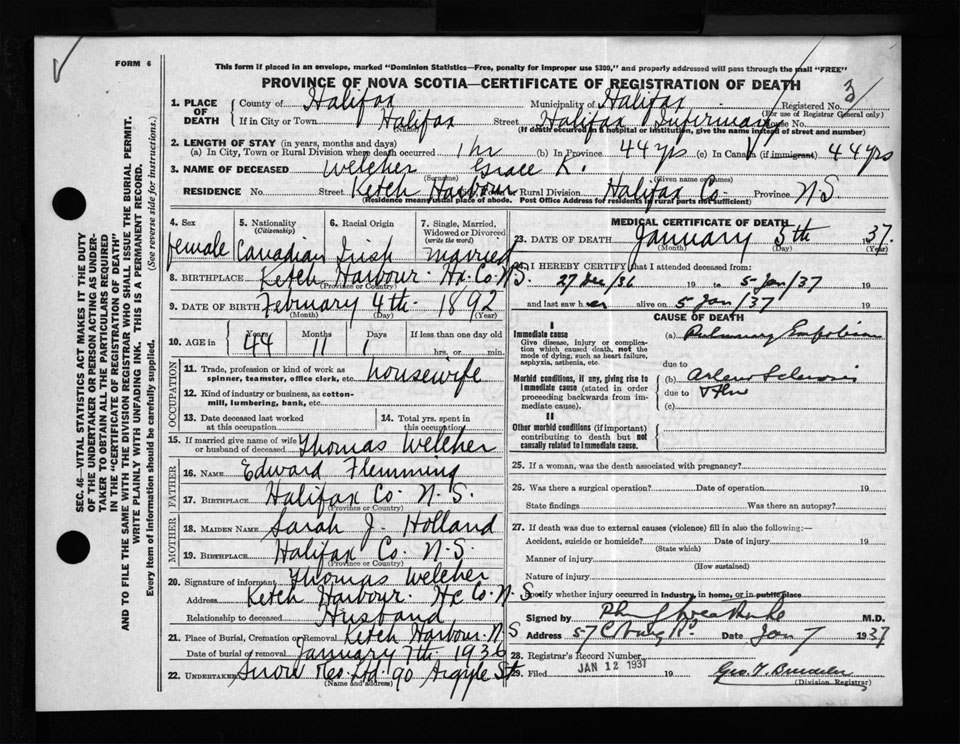 FORM 6
This form if placed in an envelope, marked "Dominion Statistics—Free, penalty for improper use $300," and properly addressed will pass through the mail "FREE"
PROVINCE OF NOVA SCOTIA—CERTIFICATE OF REGISTRATION OF DEATH
1. PLACE OF DEATH
County of Halifax Municipality of Halifax Registered No. 3
(For use of Registrar General only)
If in City or Town Halifax Street Halifax Infirmary House No.
(Name) (If death occurred in a hospital or institution, give the name instead of street and number)
2. LENGTH OF STAY (in years, months and days)
(a) In City, Town or Rural Division where death occurred 1 hr (b) In Province 44 yrs (c) In Canada (if immigrant) 44 yrs
3. NAME OF DECEASED Welcher Grace K.
(Surname) (Given name or names)
RESIDENCE No. Street Ketch Harbour or Rural Division Halifax Co. Province N.S
(Residence means usual place of abode. Post Office Address for residents of rural parts not sufficient)
4. Sex
female
5. Nationality (Citizenship)
Canadian
6. Racial Origin
Irish
7. Single, Married, Widowed or Divorced (write the word)
Married
8. BIRTHPLACE Ketch Harbour Hx. Co. N.S.
(Province or Country)
9. DATE OF BIRTH February 4th 1892
(Month) (Day) (Year)
10. AGE in
Years Months Days If less than one day old
44 11 1 hrs. or min.
OCCUPATION
11. Trade, profession or kind of work as spinner, teamster, office clerk, etc. housewife
12. Kind of industry or business, as cotton-mill, lumbering, bank, etc.
13. Date deceased last worked at this occupation
14. Total yrs. spent in this occupation
15. If married give name of wife or husband of deceased Thomas Welcher
FATHER
16. NAME Edward Flemming
17. BIRTHPLACE Halifax Co. N.S.
(Province or Country)
MOTHER
18. MAIDEN NAME Sarah J. Holland
19. BIRTHPLACE Halifax Co. N.S.
(Province or Country)
20. Signature of informant Thomas Welcher
Address Ketch Harbour Hx Co. N.S.
Relationship to deceased Husband
21. Place of Burial, Cremation or Removal Ketch Harbour N.S
Date of burial or removal January 7th 1936
22. UNDERTAKER Snow & Co. Ltd 90 Argyle St
(Name and address)
MEDICAL CERTIFICATE OF DEATH
23. DATE OF DEATH January 5th 1937.
(Month) (Day) (Year)
24. I HEREBY CERTIFY that I attended deceased from:
27 Dec/36 19 to 5 Jan/37 19
and last saw her alive on 5 Jan/37 19
CAUSE OF DEATH
I
Immediate cause
Give disease, injury or complication which caused death, not the mode of dying, such as heart failure, asphyxia, asthenia, etc.
(a) Pulmonary Embolism
due to
Morbid conditions, if any, giving rise to immediate cause (stated in order proceeding backwards from immediate cause).
(b)
due to
(c)
II
Other morbid conditions (if important) contributing to death but not causally related to immediate cause.
25. If a woman, was the death associated with pregnancy?
26. Was there a surgical operation? Date of operation 19
State findings Was there an autopsy?
27. If death was due to external causes (violence) fill in also the following:—
Accident, suicide or homicide? Date of injury 19
(State which)
Manner of injury
(How sustained)
Nature of injury
Specify whether injury occurred in industry, in home, or in public place
Signed by M.D.
Address 57 Date Jan 7 1937
28. Registrar's Record Number
29. Filed JAN 12 1937 19 Geo.
(Division Registrar)
SEC. 46—VITAL STATISTICS ACT MAKES IT THE DUTY
OF THE UNDERTAKER OR PERSON ACTING AS UNDER-
TAKER TO OBTAIN ALL THE PARTICULARS REQUIRED
IN THE "CERTIFICATE OF REGISTRATION OF DEATH"
AND TO FILE THE SAME WITH THE DIVISION REGISTRAR WHO SHALL ISSUE THE BURIAL PERMIT.
WRITE PLAINLY WITH UNFADING INK. THIS IS A PERMANENT RECORD.
Every item of information should be carefully supplied. (See reverse side for instructions.)